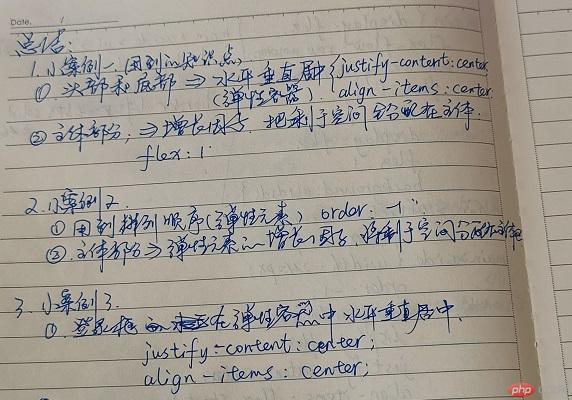 Date.
总结:
1. 小案例一、用到的知识点
① 头部和底部 ⇒ 水平垂直居中 { justify-content: center
(弹性容器) align-items: center
② 主体部分: ⇒ 增长因子, 把剩于空间全分配在主体.
flex: 1
2. 小案例2.
① 用到排列顺序(弹性元素) order: -1
②. 主体部分 ⇒ 弹性元素的增长因子, 将剩于空间分配给主体
3. 小案例3.
①. 登录框 在弹性容器中水平垂直居中.
justify-content: center;
align-items: center;
php